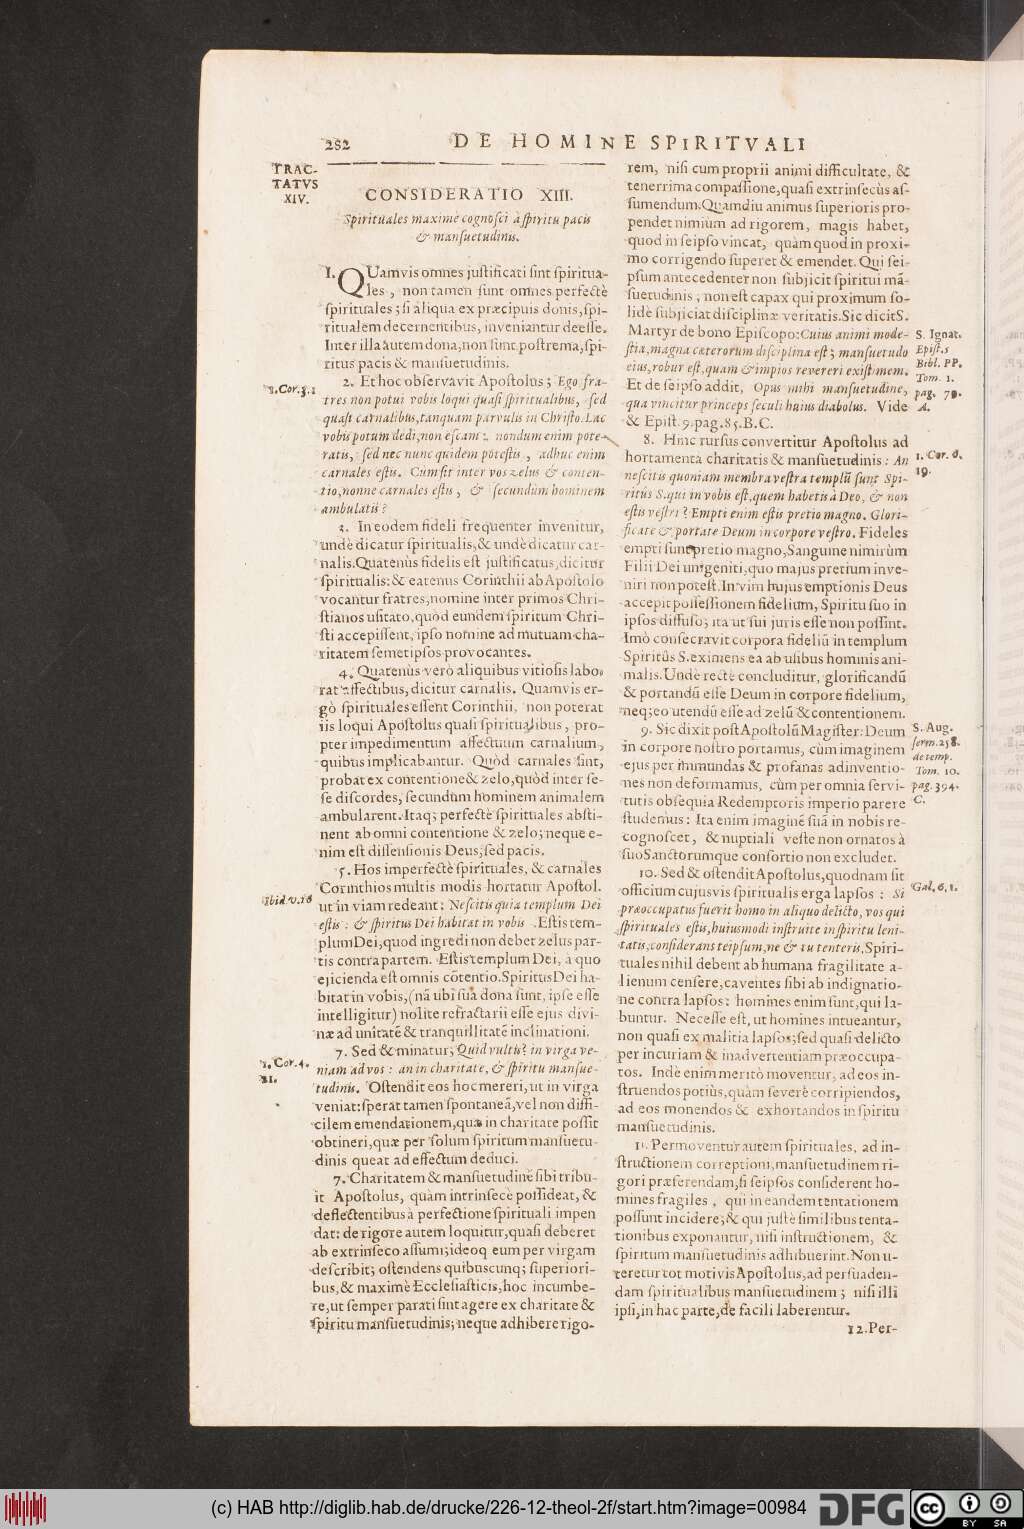 282 DE HOMINE SPIRITVALI
TRAC-
TATVS
XIV.
CONSIDERATIO XIII.
Spirituales maximè cognosci à spiritu pacis
& mansuetudinis.
1. QUamvis omnes justificati sint spiritua-
les, non tamen sunt omnes perfectè
spirituales; si aliqua ex præcipuis donis, spi-
ritualem decernentibus, inveniantur deesse.
Inter illa autem dona, non sunt postrema, spi-
ritus pacis & mansuetudinis.
2. Et hoc observavit Apostolus; Ego fra-
1. Cor. 3. 1
tres non potui vobis loqui quasi spiritualibus, sed
quasi carnalibus, tanquam parvulis in Christo. Lac
vobis potum dedi, non escam: nondum enim pote-
ratis, sed nec nunc quidem potestis, adhuc enim
carnales estis. Cum sit inter vos zelus & conten-
tio, nonne carnales estis, & secundùm hominem
ambulatis?
3. In eodem fideli frequenter invenitur,
undè dicatur spiritualis, & undè dicatur car-
nalis. Quatenùs fidelis est justificatus, dicitur
spiritualis: & eatenus Corinthii ab Apostolo
vocantur fratres, nomine inter primos Chri-
stianos usitato, quòd eundem spiritum Chri-
sti accepissent, ipso nomine ad mutuam cha-
ritatem semetipsos provocantes.
4. Quatenùs verò aliquibus vitiosis labo-
rat affectibus, dicitur carnalis. Quamvis er-
gò spirituales essent Corinthii, non poterat
iis loqui Apostolus quasi spiritualibus, pro-
pter impedimentum affectuum carnalium,
quibus implicabantur. Quòd carnales sint,
probat ex contentione & zelo, quòd inter se-
se discordes, secundum hominem animalem
ambularent. Itaq; perfectè spirituales absti-
nent ab omni contentione & zelo; neque e-
nim est dissensionis Deus, sed pacis.
5. Hos imperfectè spirituales, & carnales
Corinthios multis modis hortatur Apostol.
Ibid. v. 16
ut in viam redeant: Nescitis quia templum Dei
estis: & spiritus Dei habitat in vobis. Estis tem-
plum Dei, quod ingredi non debet zelus par-
tis contra partem. Estis templum Dei, à quo
ejicienda est omnis cõtentio. Spiritus Dei ha-
bitat in vobis, (nã ubi sua dona sunt, ipse esse
intelligitur) nolite refractarii esse ejus divi-
næ ad unitatẽ & tranquillitatẽ inclinationi.
7. Sed & minatur; Quid vultis? in virga ve-
1. Cor. 4.
21.
niam ad vos: an in charitate, & spiritu mansue-
tudinis. Ostendit eos hoc mereri, ut in virga
veniat: sperat tamen spontaneã, vel non diffi-
cilem emendationem, quæ in charitate possit
obtineri, quæ per solum spiritum mansuetu-
dinis queat ad effectum deduci.
7. Charitatem & mansuetudinẽ sibi tribu-
it Apostolus, quàm intrinsecè possideat, &
deflectentibus à perfectione spirituali impen
dat: de rigore autem loquitur, quasi deberet
ab extrinseco assumi; ideoq eum per virgam
describit; ostendens quibuscunq; superiori-
bus, & maximè Ecclesiasticis, hoc incumbe-
re, ut semper parati sint agere ex charitate &
spiritu mansuetudinis; neque adhibere rigo-
rem, nisi cum proprii animi difficultate, &
tenerrima compassione, quasi extrinsecùs as-
sumendum. Quamdiu animus superioris pro-
pendet nimium ad rigorem, magis habet,
quod in seipso vincat, quàm quod in proxi-
mo corrigendo superet & emendet. Qui sei-
psum antecedenter non subjicit spiritui mã-
suetudinis, non est capax qui proximum so-
lidè subjiciat disciplinæ veritatis. Sic dicit S.
Martyr de bono Episcopo: Cuius animi mode-
S. Ignat.
Epist. 5
Bibl. PP.
Tom. 1.
pag. 79.
A.
stia, magna cæterorum disciplina est; mansuetudo
eius, robur est, quam & impios revereri existimem.
Et de seipso addit, Opus mihi mansuetudine,
qua vincitur princeps seculi huius diabolus. Vide
& Epist. 9. pag. 85. B. C.
8. Hinc rursus convertitur Apostolus ad
hortamenta charitatis & mansuetudinis: An
1. Cor. 6.
19.
nescitis quoniam membra vestra templũ sunt Spi-
ritus S. qui in vobis est, quem habetis à Deo, & non
estis vestri? Empti enim estis pretio magno. Glori-
ficate & portate Deum in corpore vestro. Fideles
empti sunt pretio magno, Sanguine nimirùm
Filii Dei unigeniti, quo majus pretium inve-
niri non potest. In vim hujus emptionis Deus
accepit possessionem fidelium, Spiritu suo in
ipsos diffuso; ita ut sui juris esse non possint.
Imò consecravit corpora fideliũ in templum
Spiritûs S. eximens ea ab usibus hominis ani-
malis. Undè rectè concluditur, glorificandũ
& portandũ esse Deum in corpore fidelium,
neq; eo utendũ esse ad zelũ & contentionem.
9. Sic dixit post Apostolũ Magister: Deum
S. Aug.
serm. 258.
de temp.
Tom. 10.
pag. 394.
C.
in corpore nostro portamus, cùm imaginem
ejus per immundas & profanas adinventio-
nes non deformamus, cùm per omnia servi-
tutis obsequia Redemptoris imperio parere
studemus: Ita enim imaginẽ suã in nobis re-
cognoscet, & nuptiali veste non ornatos à
suo Sanctorumque consortio non excludet.
10. Sed & ostendit Apostolus, quodnam sit
officium cujusvis spiritualis erga lapsos: Si
Gal. 6. 1.
præoccupatus fuerit homo in aliquo delicto, vos qui
spirituales estis, huiusmodi instruite in spiritu leni-
tatis, considerans teipsum, ne & tu tenteris. Spiri-
tuales nihil debent ab humana fragilitate a-
lienum censere, caventes sibi ab indignatio-
ne contra lapsos: homines enim sunt, qui la-
buntur. Necesse est, ut homines intueantur,
non quasi ex malitia lapsos; sed quasi delicto
per incuriam & inadvertentiam præoccupa-
tos. Indè enim meritò moventur, ad eos in-
struendos potiùs, quàm severè corripiendos,
ad eos monendos & exhortandos in spiritu
mansuetudinis.
11. Permoventur autem spirituales, ad in-
structionem correptioni, mansuetudinem ri-
gori præferendam, si seipsos considerent ho-
mines fragiles, qui in eandem tentationem
possunt incidere; & qui justè similibus tenta-
tionibus exponantur, nisi instructionem, &
spiritum mansuetudinis adhibuerint. Non u-
teretur tot motivis Apostolus, ad persuaden-
dam spiritualibus mansuetudinem; nisi illi
ipsi, in hac parte, de facili laberentur.
12. Per-
(c) HAB http://diglib.hab.de/drucke/226-12-theol-2f/start.htm?image=00984 DFG cc BY SA